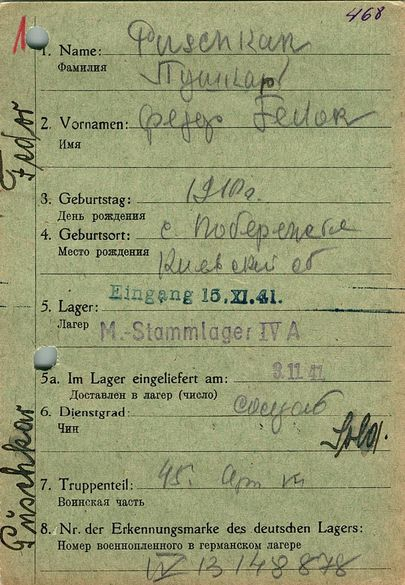 1
468
1. Name: Puschkar
Фамилия Пушкарь
2. Vornamen: Федор Fedor
Имя
3. Geburtstag: 1910г.
День рождения
4. Geburtsort: с. Побережка
Место рождения Киевский об
Eingang 15.XI.41.
5. Lager:
Лагер M.-Stammlager IV A
5a. Im Lager eingeliefert am: 3.11.41
Доставлен в лагер (число)
6. Dienstgrad:
Чин
Sold.
7. Truppenteil: 45. Арт
Воинская часть
8. Nr. der Erkennungsmarke des deutschen Lagers:
Номер военнопленного в германском лагере
IV B 148878
Fedor
Puschkar